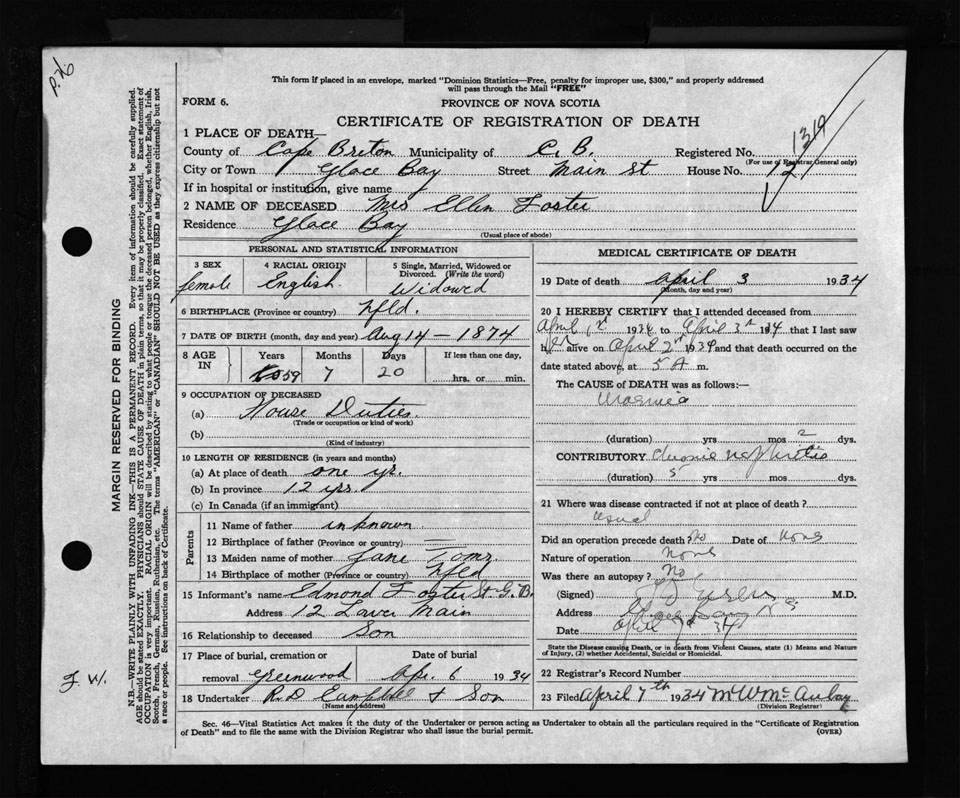 This form if placed in an envelope, marked "Dominion Statistics—Free, penalty for improper use, $300," and properly addressed
will pass through the Mail "FREE"
FORM 6.
PROVINCE OF NOVA SCOTIA
CERTIFICATE OF REGISTRATION OF DEATH
1319
1 PLACE OF DEATH—
County of Cape Breton Municipality of C. B. Registered No.
(For use of Registrar General only)
City or Town Glace Bay Street Main St House No. 12
If in hospital or institution, give name
2 NAME OF DECEASED Mrs Ellen Foster
Residence Glace Bay
(Usual place of abode)
PERSONAL AND STATISTICAL INFORMATION
3 SEX 4 RACIAL ORIGIN 5 Single, Married, Widowed or Divorced. (Write the word)
female English Widowed
6 BIRTHPLACE (Province or country) Nfld.
7 DATE OF BIRTH (month, day and year) Aug 14 - 1874
8 AGE IN Years Months Days If less than one day,
59 7 20 hrs. or min.
9 OCCUPATION OF DECEASED
(a) House Duties
(Trade or occupation or kind of work)
(b)
(Kind of industry)
10 LENGTH OF RESIDENCE (in years and months)
(a) At place of death one yr.
(b) In province 12 yrs.
(c) In Canada (if an immigrant)
Parents
11 Name of father unknown
12 Birthplace of father (Province or country) —
13 Maiden name of mother Jane
14 Birthplace of mother (Province or country) Nfld
15 Informant's name Edmond Foster St. G. B.
Address 12 Lower Main
16 Relationship to deceased Son
17 Place of burial, cremation or removal Greenwood Date of burial Apr. 6 1934
18 Undertaker R. D. Campbell & Son
(Name and address)
MEDICAL CERTIFICATE OF DEATH
19 Date of death April 3 1934
(Month, day and year)
20 I HEREBY CERTIFY that I attended deceased from
April 1st 1934 to April 3rd 1934 that I last saw
her alive on April 2nd 1934 and that death occurred on the
date stated above, at 5 A m.
The CAUSE OF DEATH was as follows:—
Uraemia
(duration) yrs mos 2 dys.
CONTRIBUTORY Chronic nephritis
(duration) 5 yrs mos dys.
21 Where was disease contracted if not at place of death?
usual
Did an operation precede death? No Date of None
Nature of operation None
Was there an autopsy? No
(Signed) M.D.
Address Glace Bay N S
Date April 34
State the Disease causing Death, or in death from Violent Causes, state (1) Means and Nature
of Injury, (2) whether Accidental, Suicidal or Homicidal.
22 Registrar's Record Number
23 Filed April 7th 1934
(Division Registrar)
Sec. 46—Vital Statistics Act makes it the duty of the Undertaker or person acting as Undertaker to obtain all the particulars required in the "Certificate of Registration
of Death" and to file the same with the Division Registrar who shall issue the burial permit. (OVER)
MARGIN RESERVED FOR BINDING
N.B.—WRITE PLAINLY WITH UNFADING INK—THIS IS A PERMANENT RECORD. Every item of information should be carefully supplied.
AGE should be stated EXACTLY. PHYSICIANS should STATE CAUSE OF DEATH in plain terms, so that it may be properly classified. Exact statement of
OCCUPATION is very important. RACIAL ORIGIN will be described by stating to what people or tongue the deceased person belonged, whether English, Irish,
Scotch, French, German, Russian, Ruthenian, etc. The terms "AMERICAN" or "CANADIAN" SHOULD NOT BE USED as they express citizenship but not
a race or people. See instructions on back of Certificate.
F. W.